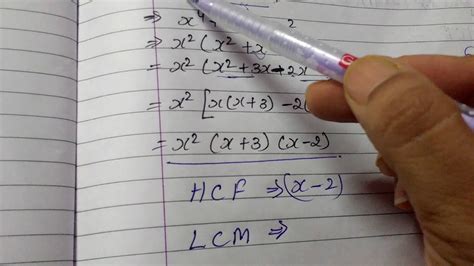 ⇒ x⁴ 2
⇒ x² (x² + x
= x² (x² + 3x - 2x
= x² [x(x+3) - 2(
= x² (x+3) (x-2)
HCF ⇒ (x-2)
LCM ⇒